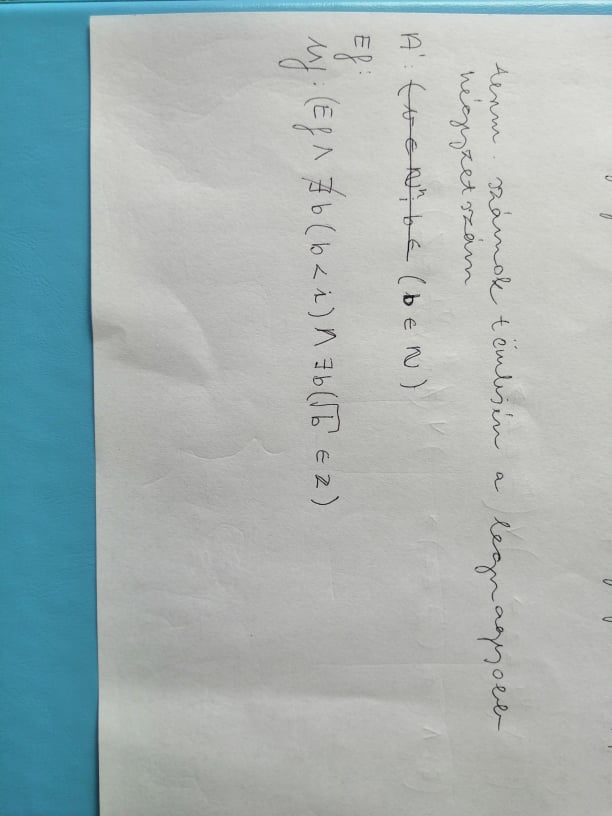 term. számok tömbjén a legnagyobb
négyzetszám
A: (v ∈ ℕⁿ, b ∈ (b ∈ ℕ)
Ef:
Uf: (Ef ∧ ∄b(b < i) ∧ ∃b(√b ∈ ℤ)